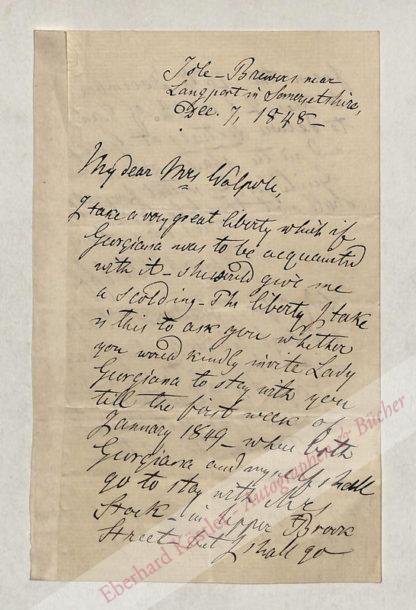 Isle-Brewers near
Langport in Somersetshire,
Dec. 7, 1848-
My dear Mrs Walpole,
I take a very great liberty which if
Georgiana was to be acquainted
with it - she would give me
a scolding - The liberty I take
is this to ask you whether
you would kindly invite Lady
Georgiana to stay with you
till the first week of
January 1849 - when both
Georgiana and myself shall
go to stay with Mrs
Stock - in Upper Brook
Street but I shall go
Eberhard Köstler Autographen & Bücher